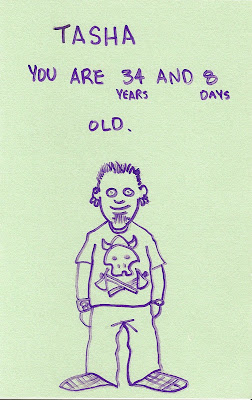 TASHA
YOU ARE 34 AND 8
YEARS DAYS
OLD.